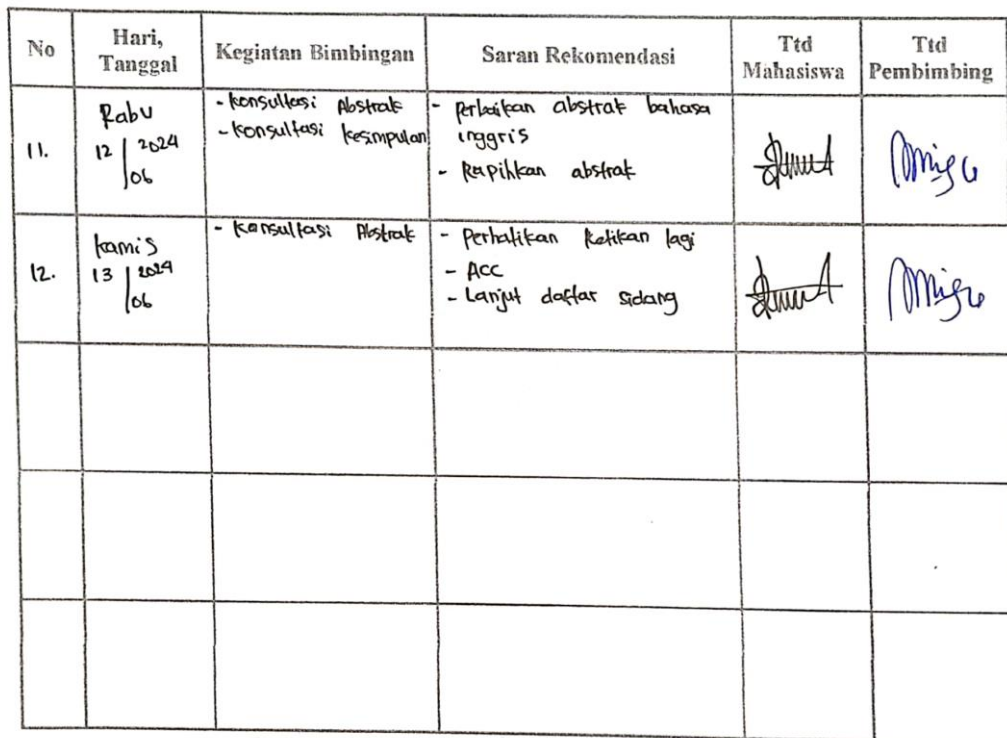 No
Hari,
Tanggal
Kegiatan Bimbingan
Saran Rekomendasi
Ttd
Mahasiswa
Ttd
Pembimbing
11.
Rabu
12 / 2024
06
- konsultasi Abstrak
- konsultasi kesimpulan
- perbaikan abstrak bahasa
inggris
- Rapihkan abstrak
12.
kamis
13 / 2024
06
- konsultasi Abstrak
- perhatikan ketikan lagi
- ACC
- Lanjut daftar sidang